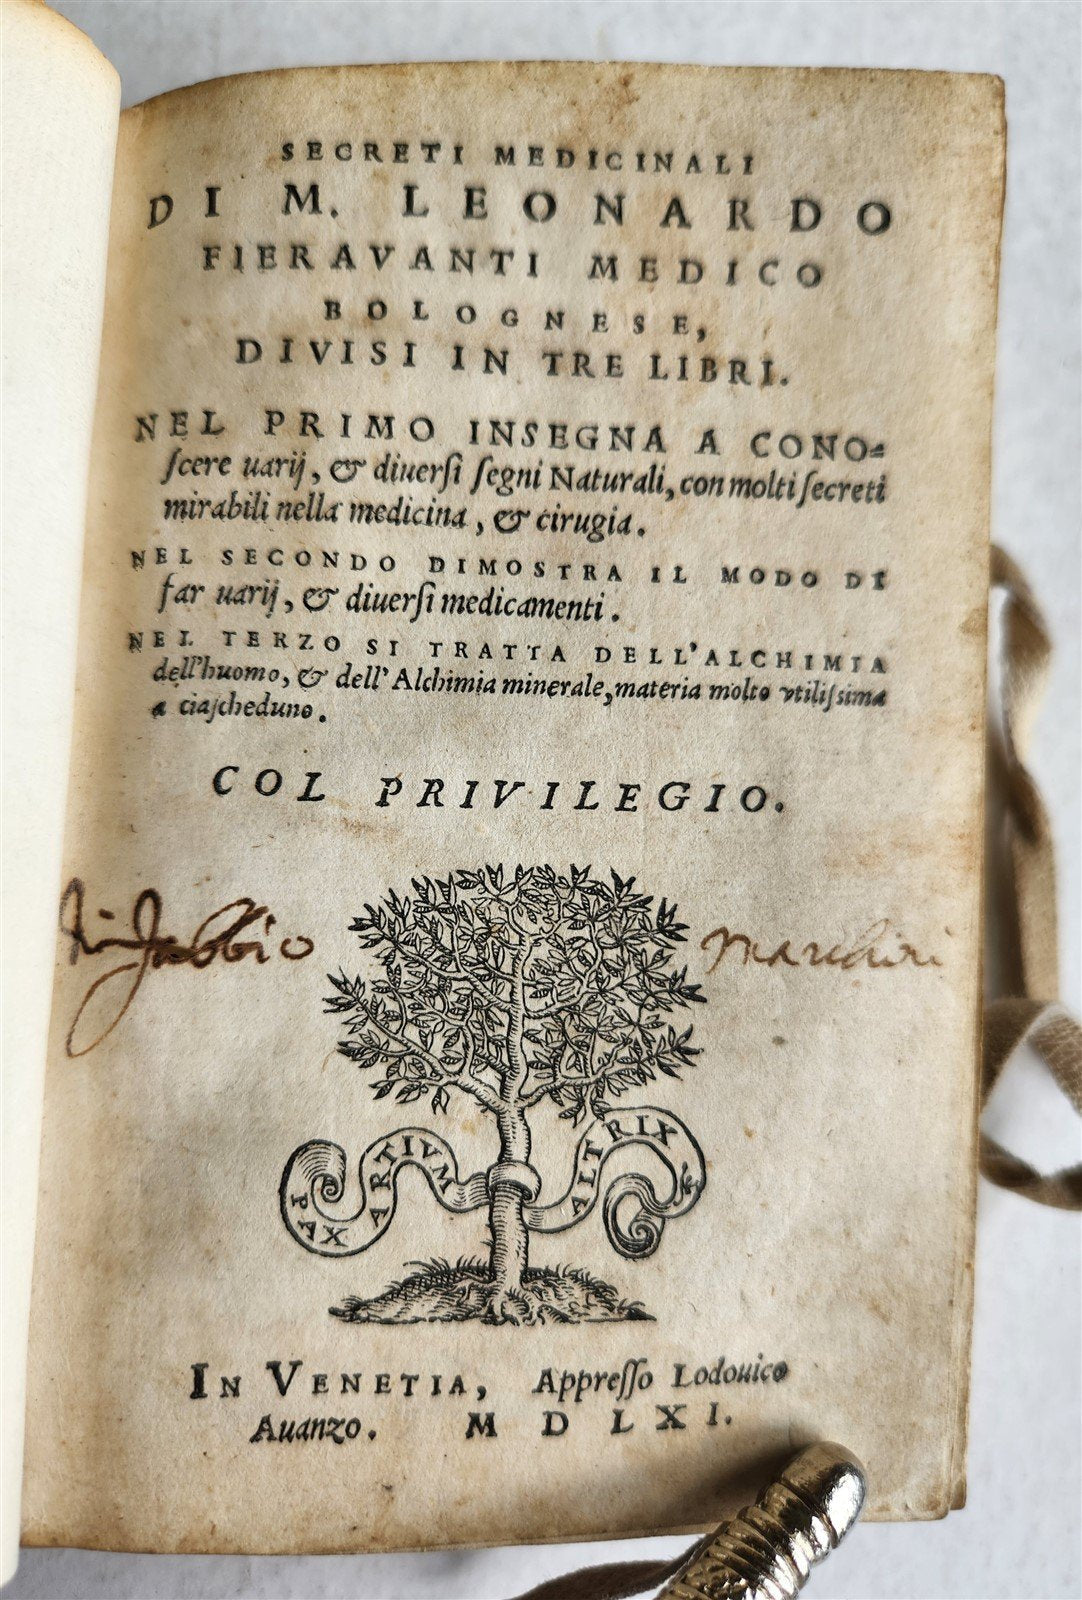 SECRETI MEDICINALI
DI M. LEONARDO
FIERAVANTI MEDICO
BOLOGNESE,
DIVISI IN TRE LIBRI.
NEL PRIMO INSEGNA A CONO=
ſcere uarij, & diuerſi ſegni Naturali, con molti ſecreti
mirabili nella medicina, & cirugia.
NEL SECONDO DIMOSTRA IL MODO DI
far uarij, & diuerſi medicamenti.
NEL TERZO SI TRATTA DELL'ALCHIMIA
dell'huomo, & dell'Alchimia minerale, materia molto vtiliſsima
a ciaſcheduno.
COL PRIVILEGIO.
Fabbio Marchiori
PAX ARTIVM ALTRIX
IN VENETIA, Appreſſo Lodouico
Auanzo. M D LXI.